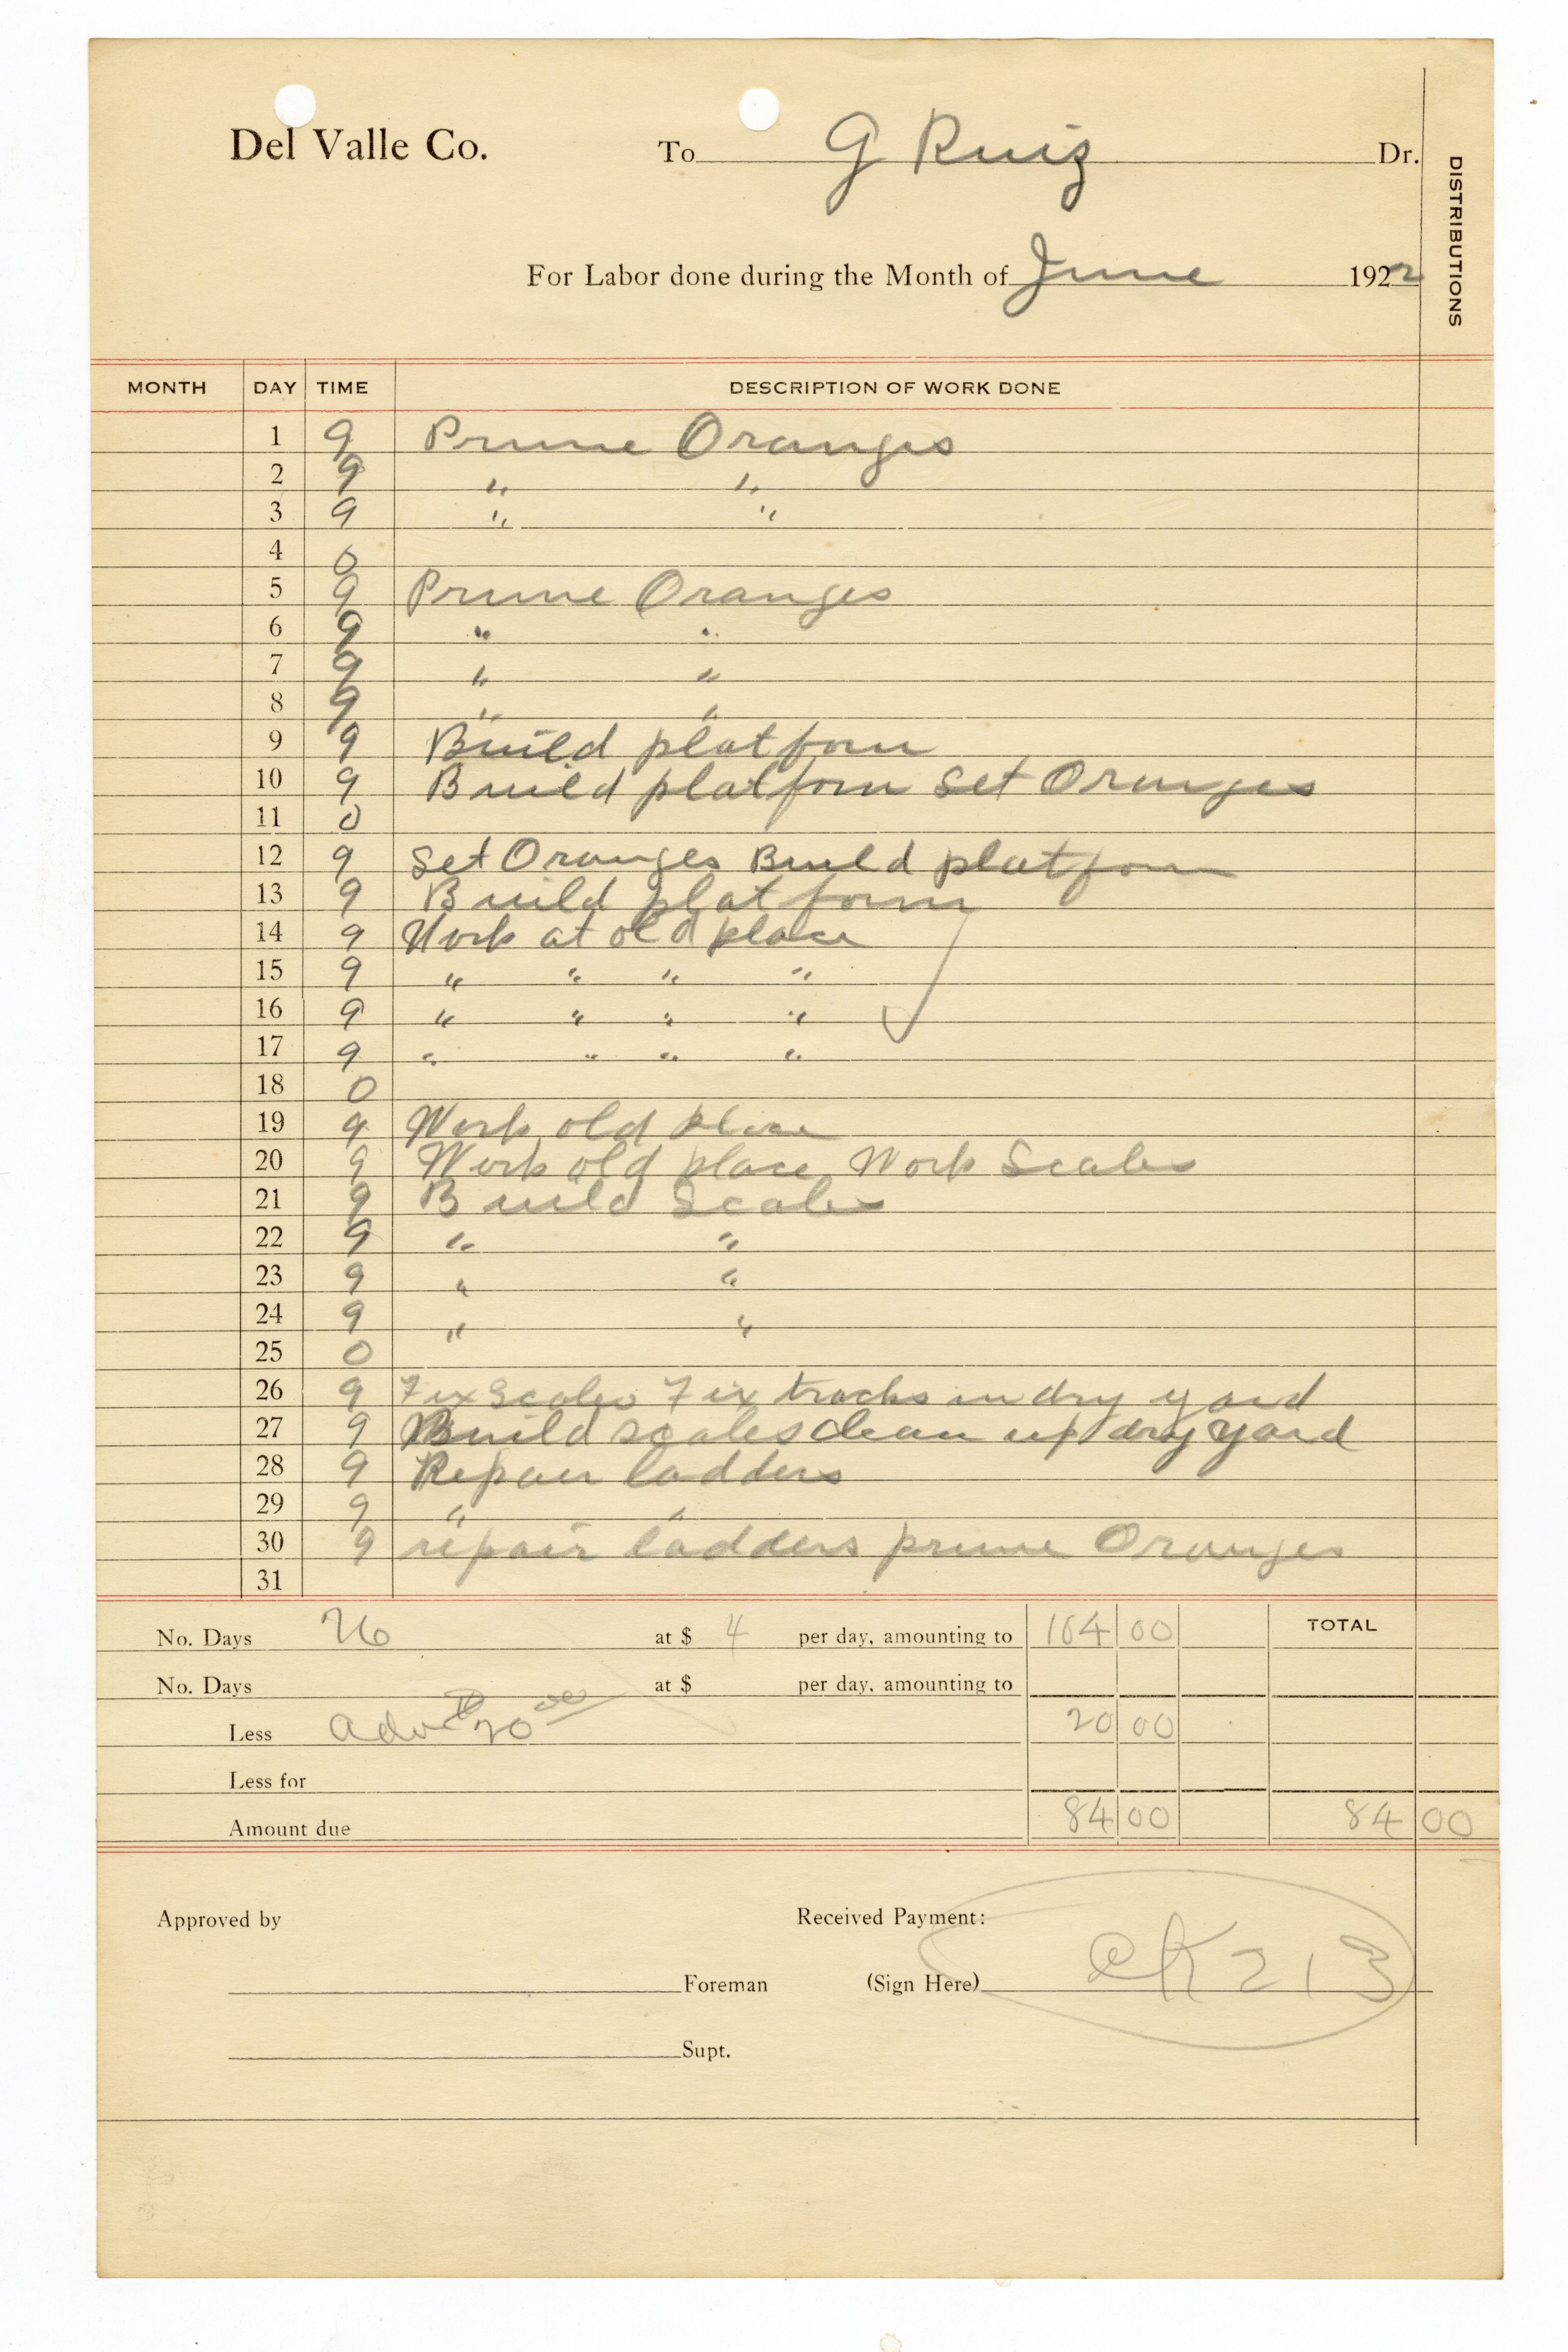 Del Valle Co. To G Ruiz Dr.
DISTRIBUTIONS
For Labor done during the Month of June 1922
MONTH DAY TIME DESCRIPTION OF WORK DONE
1 9 Prune Oranges
2 9 " "
3 9 " "
4 0
5 9 Prune Oranges
6 9 " "
7 9 " "
8 9 " "
9 9 Build platform
10 9 Build platform Set Oranges
11 0
12 9 Set Oranges Build platform
13 9 Build platform
14 9 Work at old place
15 9 " " " "
16 9 " " " "
17 9 " " " "
18 0
19 9 Work old place
20 9 Work old place Work Scales
21 9 Build Scales
22 9 " "
23 9 " "
24 9 " "
25 0
26 9 Fix Scales Fix tracks in dry yard
27 9 Build scales clean up dry yard
28 9 Repair ladders
29 9 " "
30 9 repair ladders prune Oranges
31
No. Days 26 at $ 4 per day, amounting to 104 00 TOTAL
No. Days at $ per day, amounting to
Less 20 00 20 00
Less for
Amount due 84 00 84 00
Approved by Received Payment:
Foreman (Sign Here) CK 213
Supt.